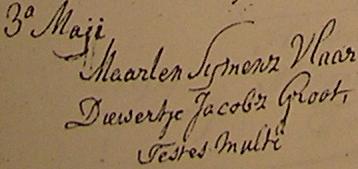 3ª Maji
Maarten Sijmenz Vlaar
Dieuwertje Jacobz Groot,
Testes Multi